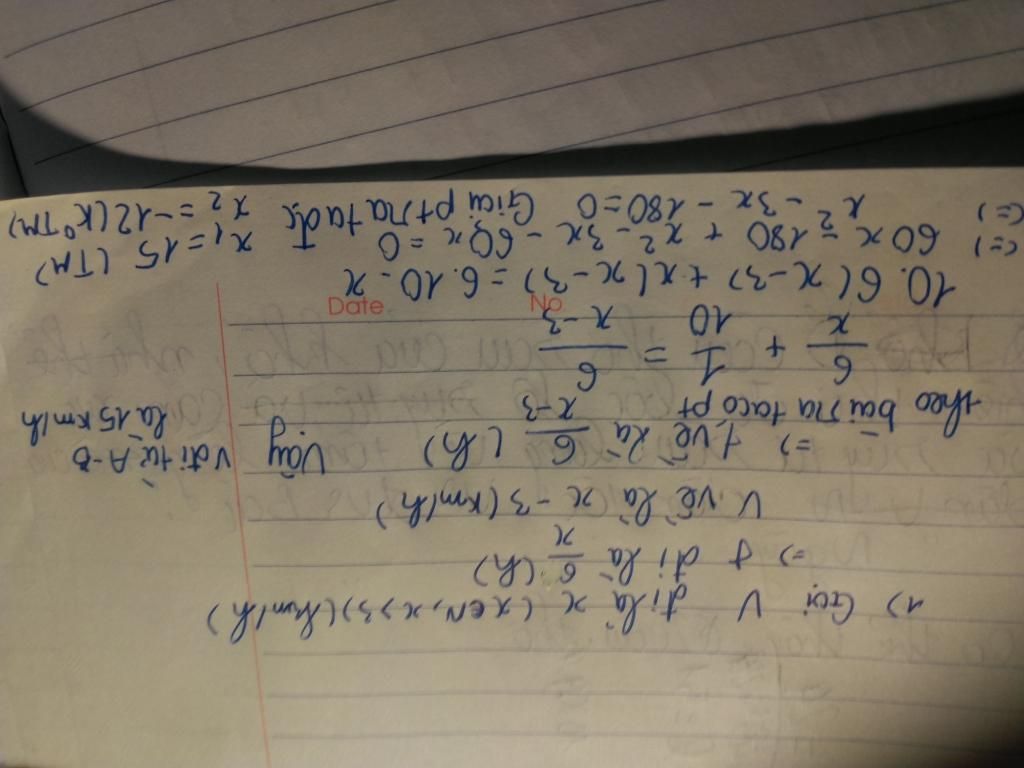 1) Gọi V đi là x (x∈N, x>3) (km/h)
=) t đi là 6/x (h)
V về là x - 3 (km/h)
=) t về là 6/x-3 (h)
theo bài ra ta có pt
6/x + 1/10 = 6/x-3
No Date
10.6(x-3) + x(x-3) = 6.10.x
(=) 60x - 180 + x² - 3x - 60x = 0
(=) x² - 3x - 180 = 0 Giải pt ra ta đc
x₁ = 15 (TM)
x₂ = -12 (K° TM)
Vậy
V đi từ A-B
là 15 km/h